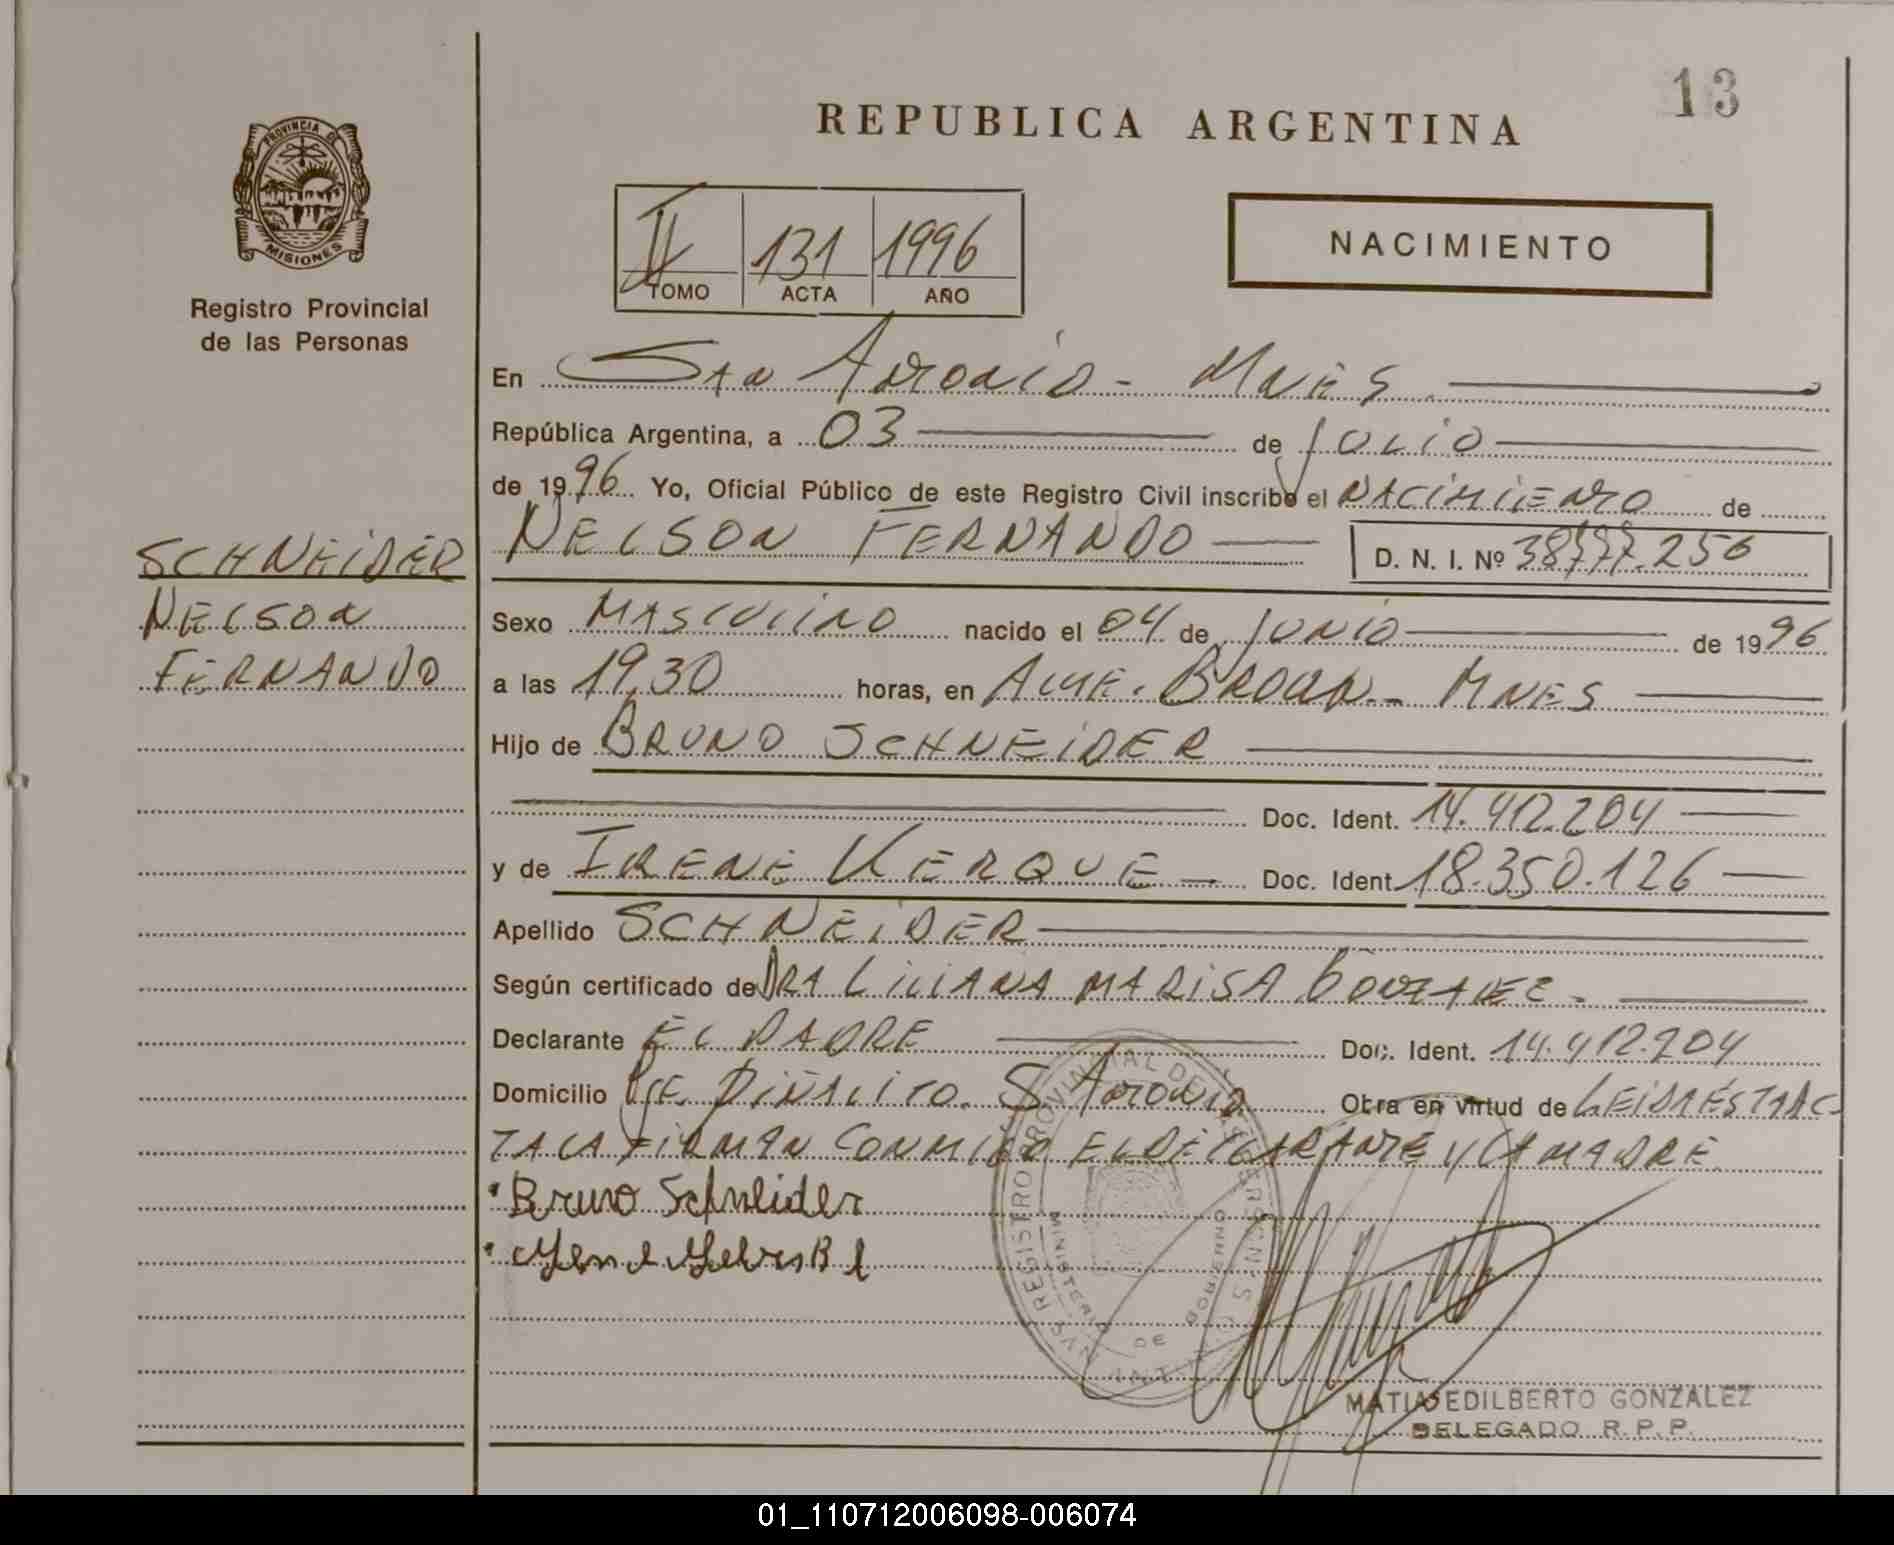 13
REPUBLICA ARGENTINA
PROVINCIA DE
MISIONES
Registro Provincial
de las Personas
II 131 1996
TOMO ACTA AÑO
NACIMIENTO
En San Antonio - Mnes
República Argentina, a 03 de Julio
de 1996 Yo, Oficial Público de este Registro Civil inscribo el NACIMIENTO de
NELSON FERNANDO D. N. I. Nº 38.777.256
SCHNEIDER
NELSON
FERNANDO
Sexo MASCULINO nacido el 04 de JUNIO de 1996
a las 19,30 horas, en ALTE. BROWN - MNES
Hijo de BRUNO SCHNEIDER
Doc. Ident. 14.412.204
y de IRENE KERQUE - Doc. Ident. 18.350.126
Apellido SCHNEIDER
Según certificado de DRA LILIANA MARISA GONZALEZ -
Declarante EL PADRE Doc. Ident. 14.412.204
Domicilio PJE. PIÑALITO. S. ANTONIO Otra en virtud de LEIDA ESTA AC-
TA LA FIRMAN CONMIGO EL DECLARANTE Y LA MADRE
Bruno Schneider
REGISTRO PROVINCIAL DE LAS PERSONAS
MINISTERIO DE GOBIERNO
MATIAS EDILBERTO GONZALEZ
DELEGADO R. P. P.
01_110712006098-006074